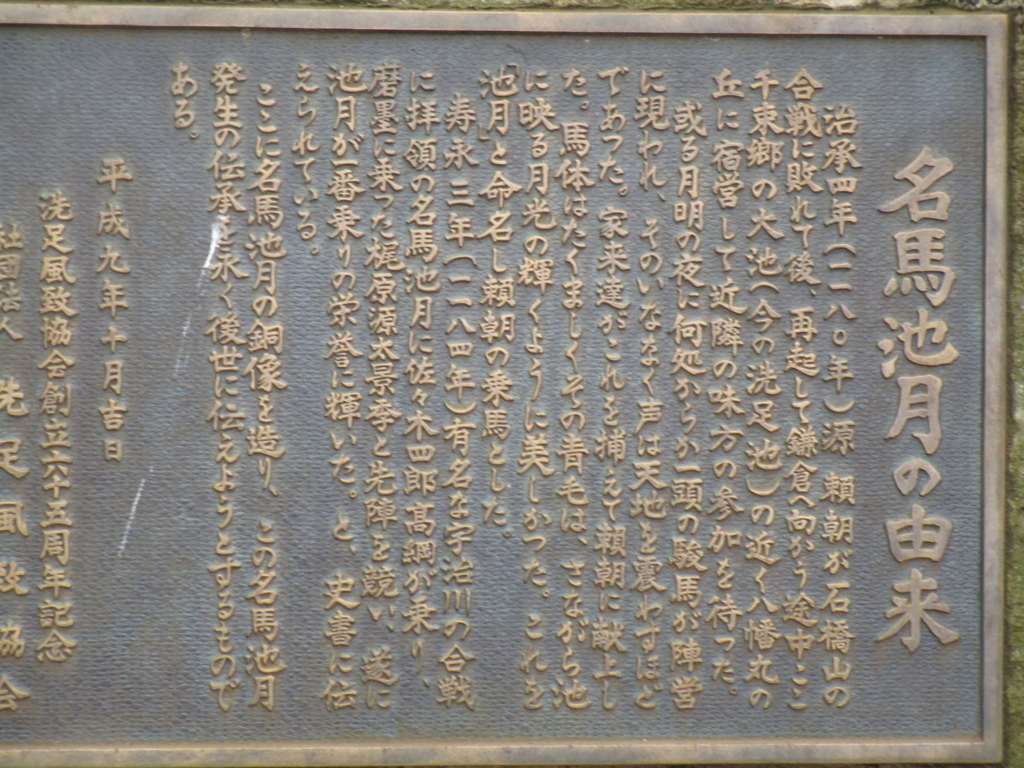 名馬池月の由来
治承四年(一一八〇年)源 頼朝が石橋山の
合戦に敗れて後、再起して鎌倉へ向かう途中ここ
千束郷の大池(今の洗足池)の近く八幡丸の
丘に宿営して近隣の味方の参加を待った。
或る月明の夜に何処からか一頭の駿馬が陣営
に現われ、そのいななく声は天地を震わすほど
であった。家来達がこれを捕えて頼朝に献上し
た。馬体はたくましくその青毛は、さながら池
に映る月光の輝くように美しかった。これを
池月と命名し頼朝の乗馬とした。
寿永三年(一一八四年)有名な宇治川の合戦
に拝領の名馬池月に佐々木四郎高綱が乗り、
磨墨に乗った梶原源太景季と先陣を競い、遂に
池月が一番乗りの栄誉に輝いた。と、史書に伝
えられている。
ここに名馬池月の銅像を造り、この名馬池月
発生の伝承を永く後世に伝えようとするもので
ある。
平成九年十月吉日
洗足風致協会創立六十五周年記念
社団法人 洗足風致協会